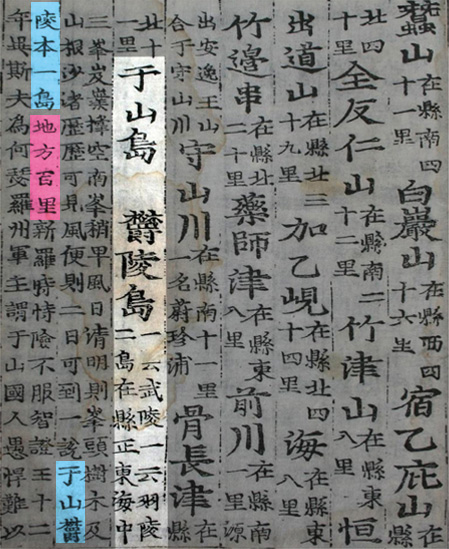 蠶山在縣南四十一里白巖山在縣西四十六里宿乙庇山在縣
北四十里全反仁山在縣南二十二里竹津山在縣東八里恒
出道山在縣北三十九里加乙峴在縣北四十四里海在縣東八里
竹邊串在縣北二十里藥師津在縣東八里前川在縣南一里源
出安逸王山合于守山川守山川在縣南十一里一名蔚珍浦骨長津在縣
北十一里于山島 鬱陵島一云武陵一云羽陵二島在縣正東海中
三峯岌嶪撑空南峯稍卑風日清明則峯頭樹木及
山根沙渚歷歷可見風便則二日可到一說于山鬱
陵本一島地方百里新羅時恃險不服智證王十二
年異斯夫為何瑟羅州軍主謂于山國人愚悍難以